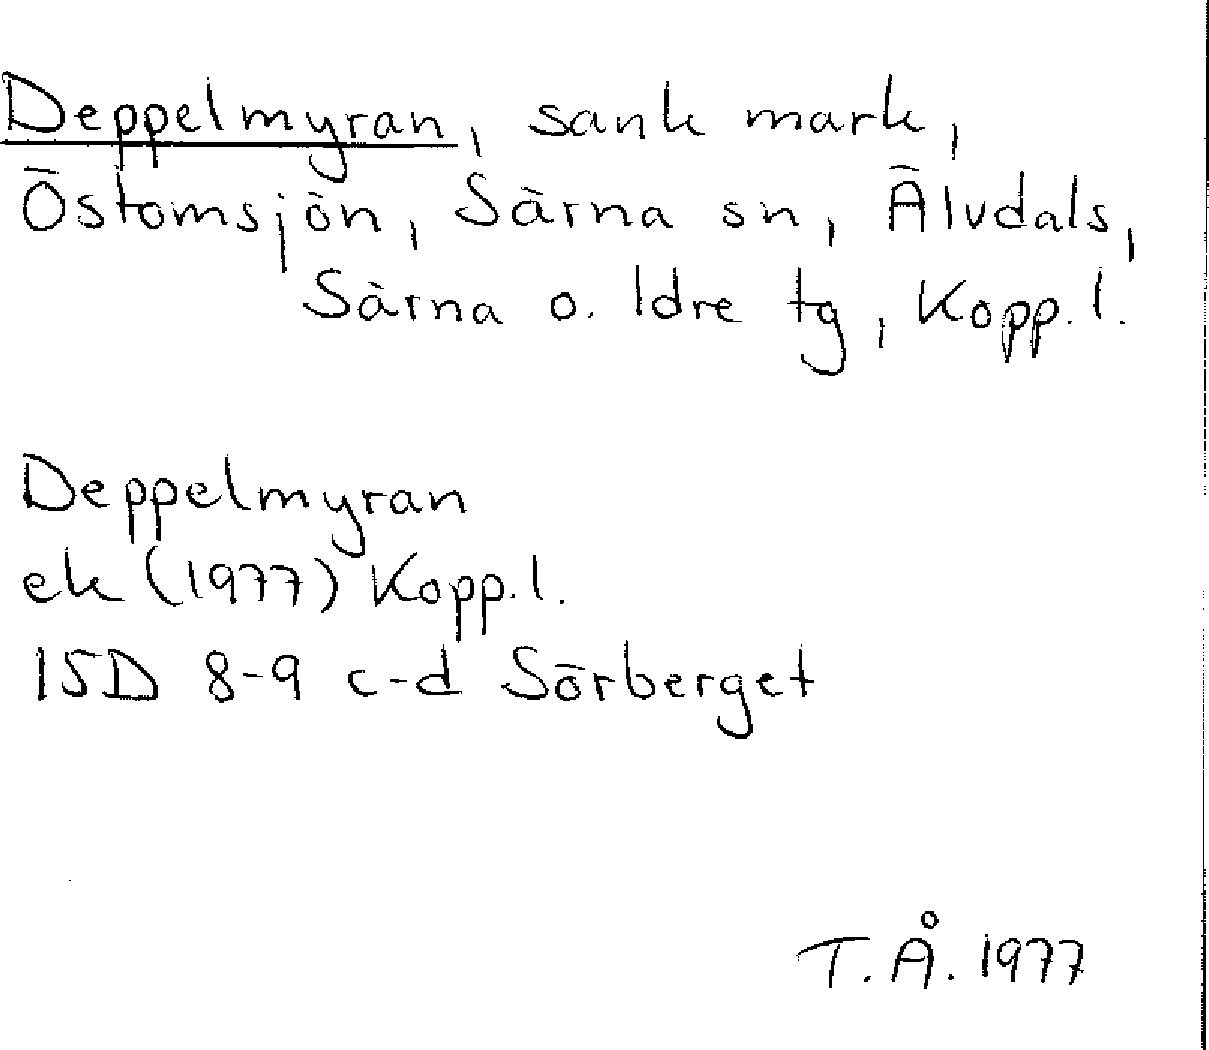 Deppelmyran, sank mark,
Östomsjön, Särna sn, Älvdals,
Särna o. Idre tg, Kopp. l.
Deppelmyran
ek (1977) Kopp. l.
15D 8-9 c-d Sörberget
T. Å. 1977